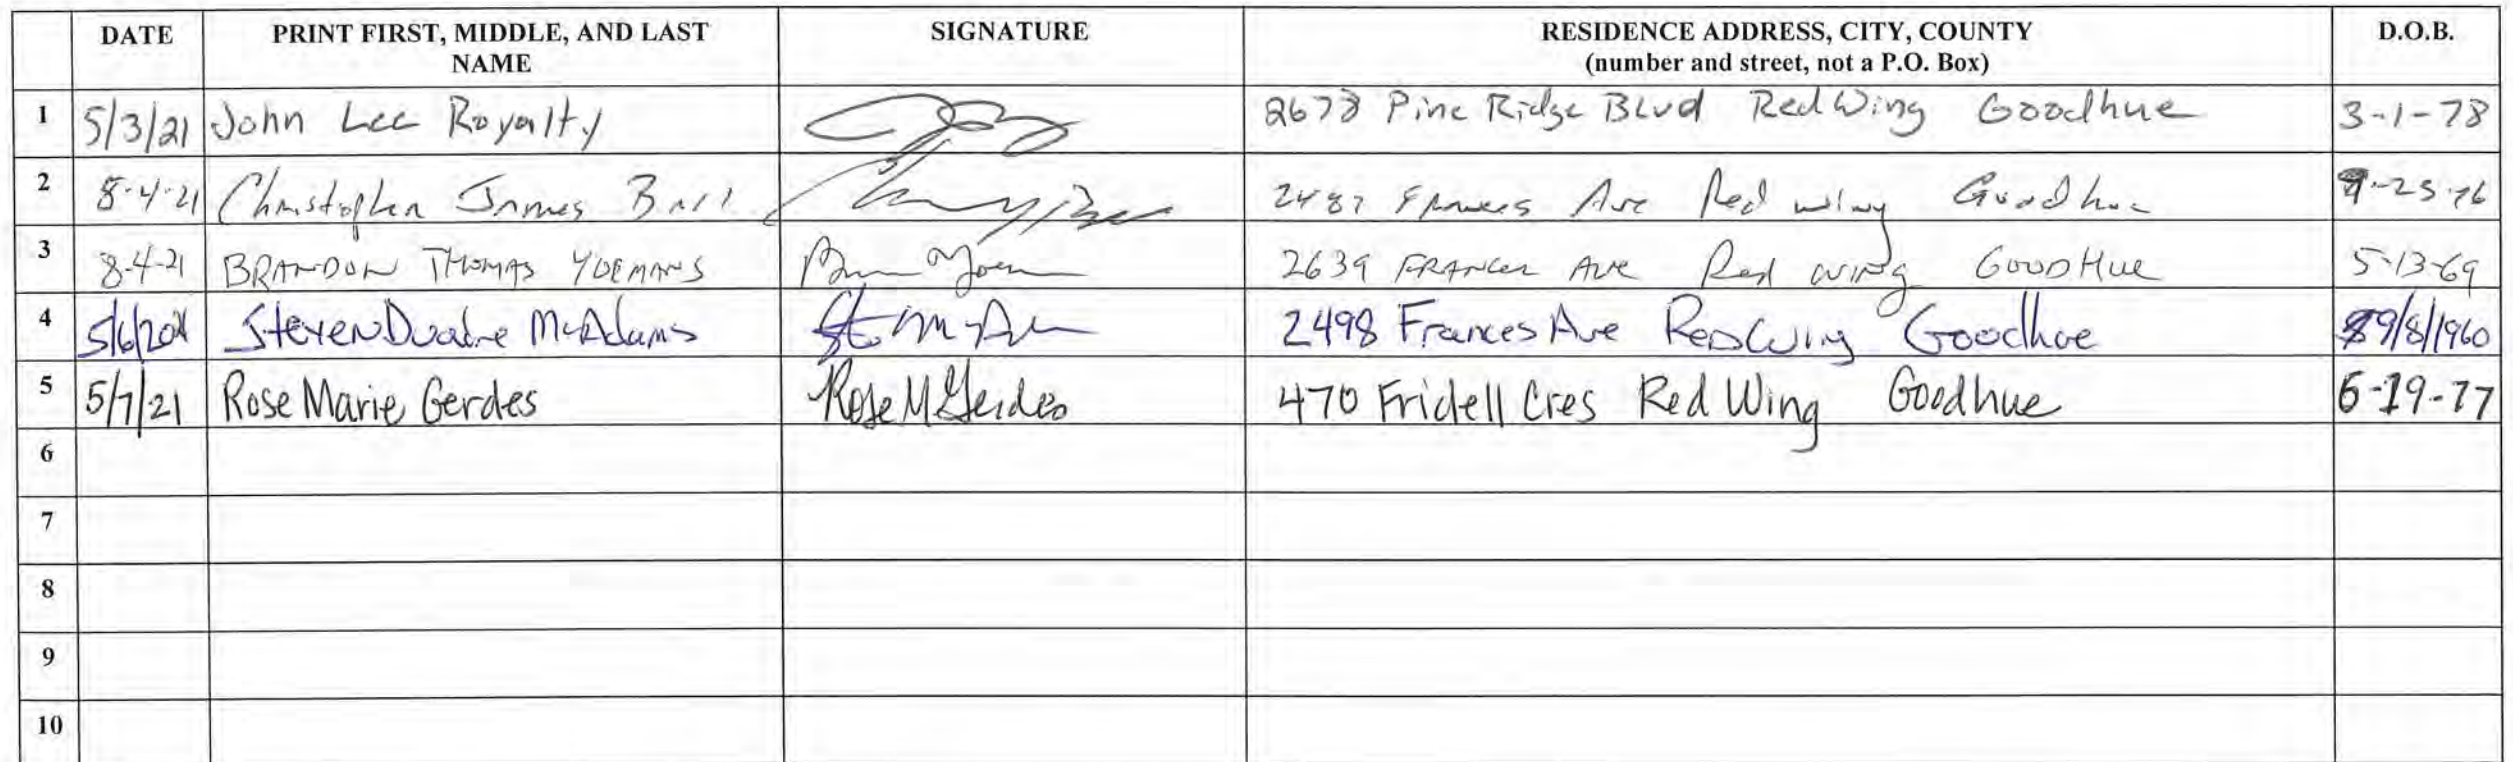 DATE PRINT FIRST, MIDDLE, AND LAST NAME SIGNATURE RESIDENCE ADDRESS, CITY, COUNTY (number and street, not a P.O. Box) D.O.B.
1 5/3/21 John Lee Royalty 2678 Pine Ridge Blvd Red Wing Goodhue 3-1-78
2 8-4-21 Christopher James Ball 2487 Frances Ave Red wing Goodhue 9-25-76
3 8-4-21 BRANDON THOMAS YOEMANS 2639 FRANCES AVE Red wing GOODHue 5-13-69
4 5/6/2021 Steven Duane McAdams 2498 Frances Ave Red Wing Goodhue 9/8/1960
5 5/7/21 Rose Marie Gerdes Rose M Gerdes 470 Fridell Cres Red Wing Goodhue 6-19-77
6
7
8
9
10